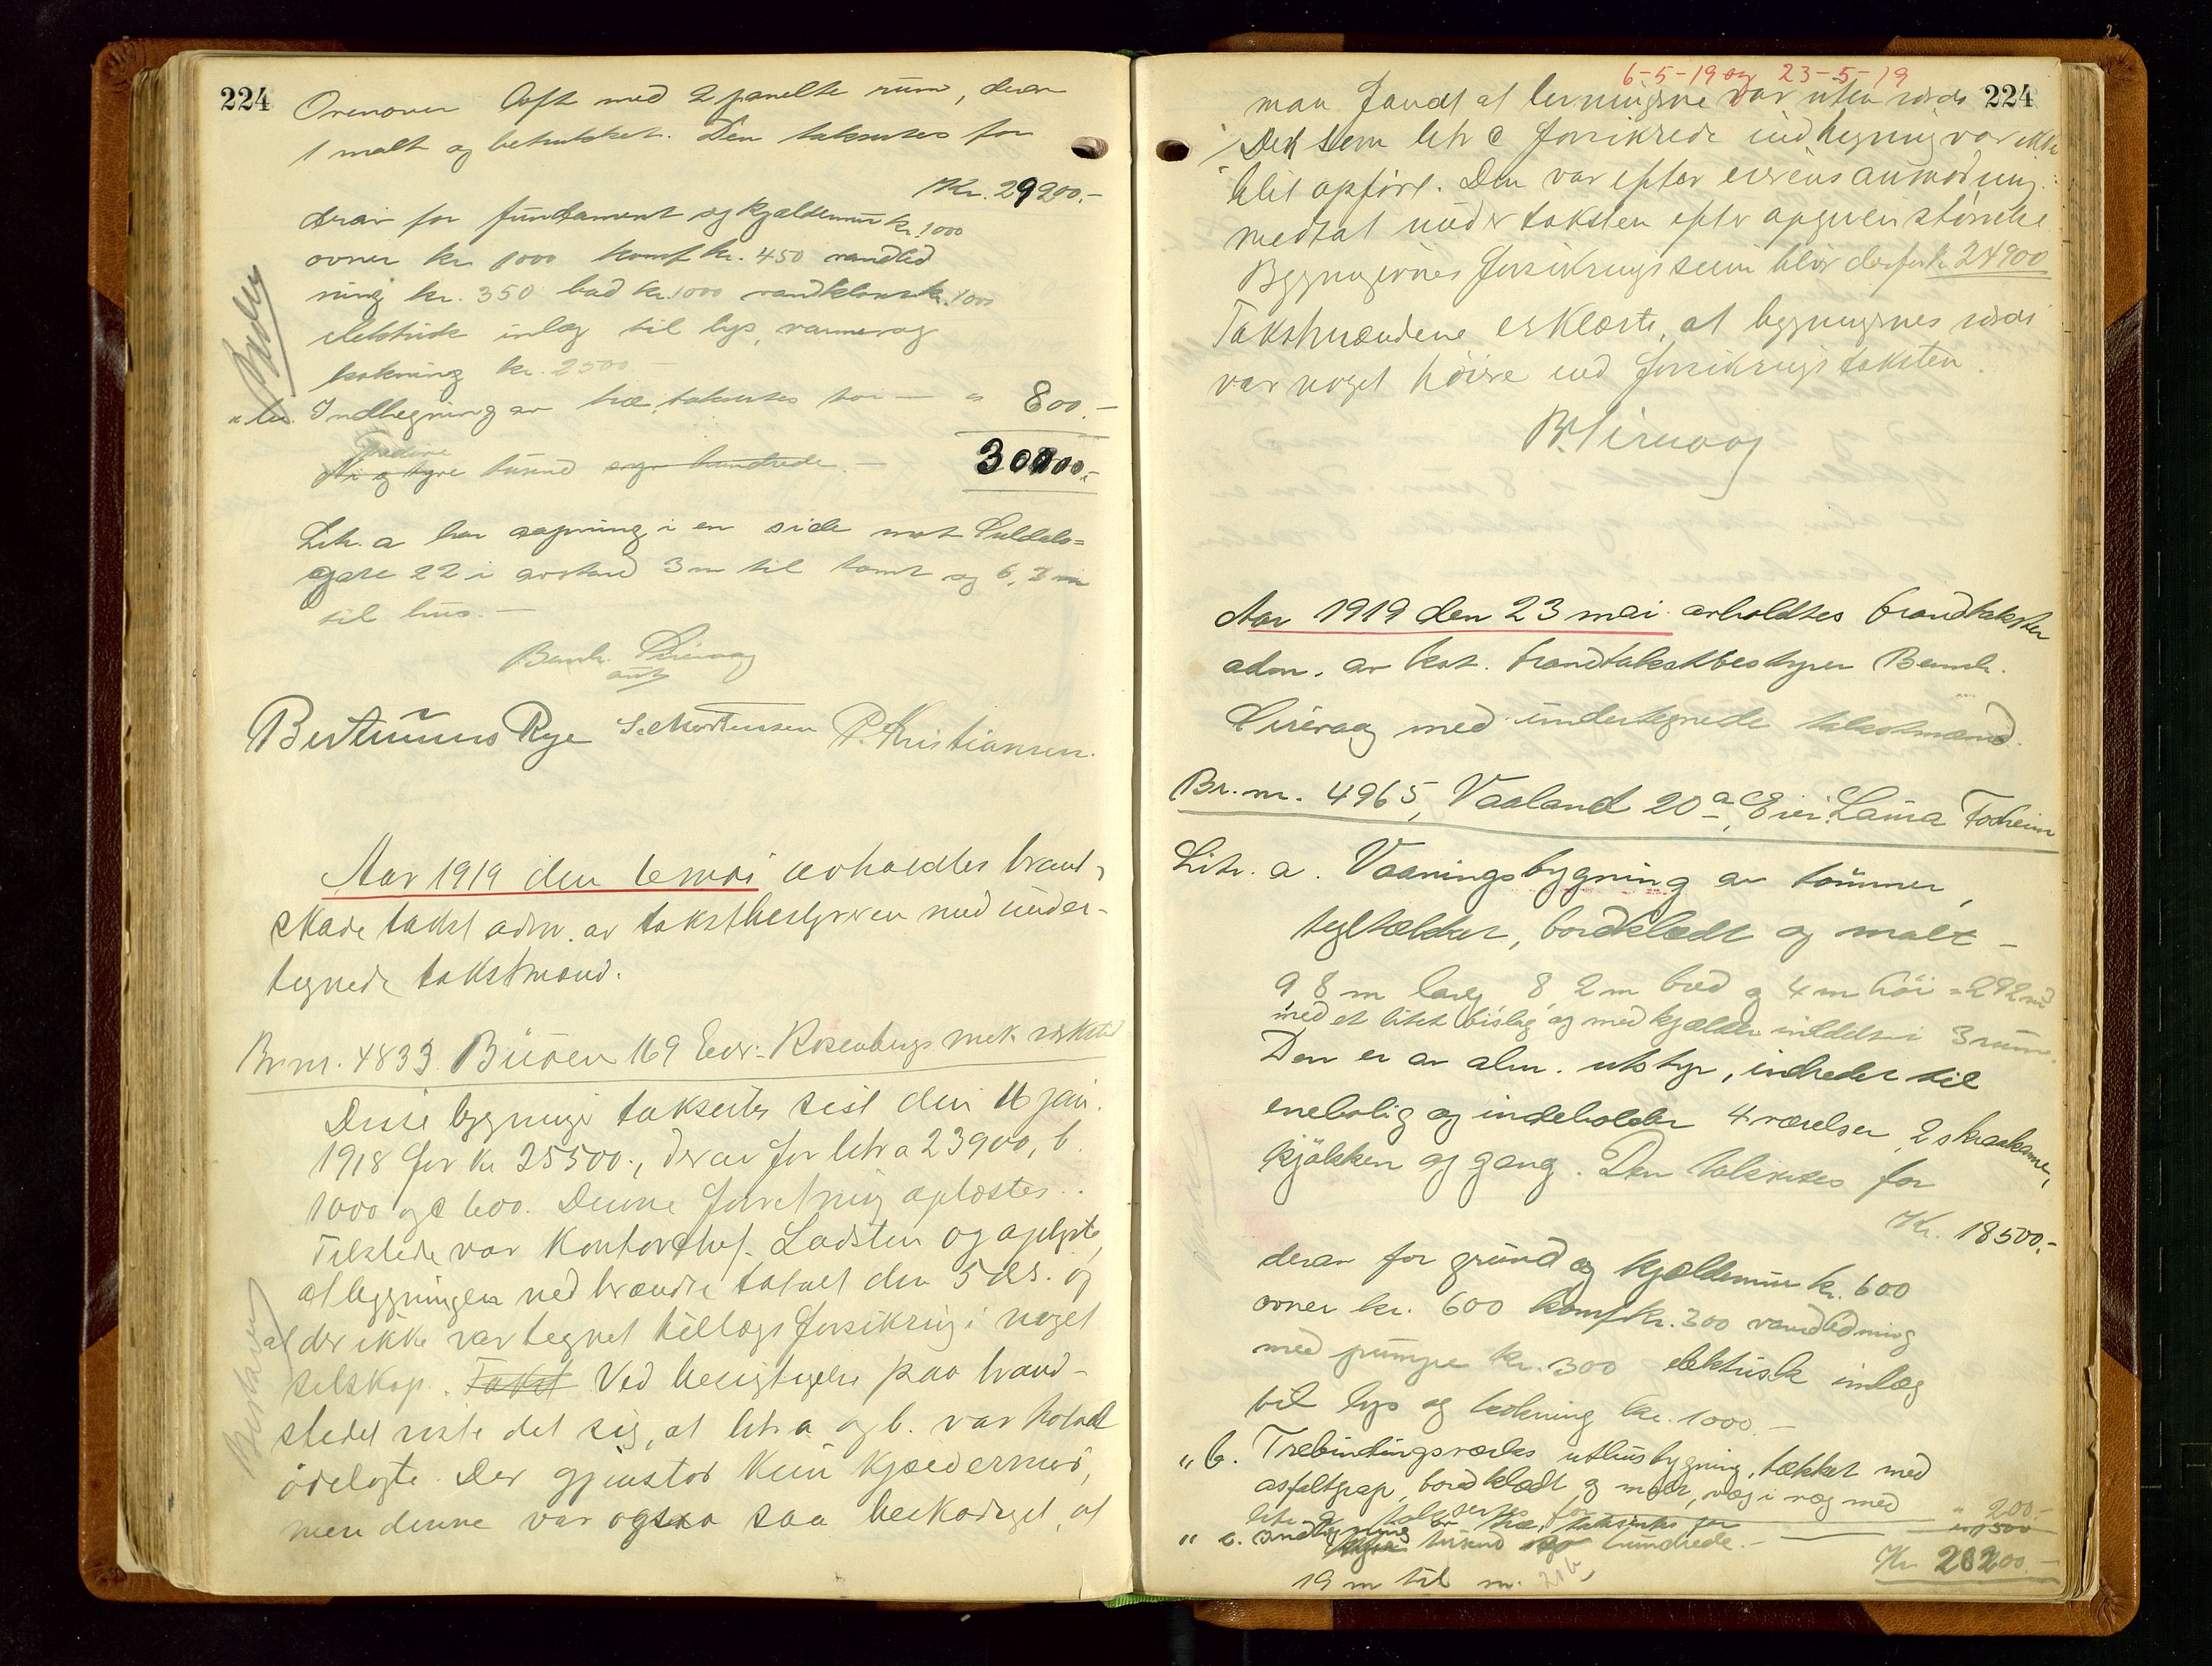 224
Ovenover loft med 2 panelte rum, derav
1 malt og betrukket. Den takseres for
Kr. 29200.-
derav for fundament og kjældermur kr. 1000
ovner kr. 1000 komf. kr. 450 vandled
ning kr. 350 bad kr. 1000 vandklosæt kr. 1000
elektrisk inlæg til lys, varme og
kokning kr. 2500
" litr. Indhegning av træ, takseres for — " 800.-
Tredive
Ni og tyve tusind hundrede. — 30000.-
Litr. a har aapning i en side mot Suldals=
gate 22 i avstand 3 m til tomt og 6,3 m
til hus. —
Bernh. Sirevaag
Bertinius Rye S. Mortensen P. Kristiansen.
Aar 1919 den 6 mai avholdtes brand-
skade takst adm. av takstbestyreren med under-
tegnede takstmænd.
Br. nr. 4833. Buöen 169 Eier: Rosenbergs mek. verksted
Disse bygninger takseertes sist den 16 jan.
1918 for kr 25500., derav for litr a 23900, b.
1000 og c 600. Denne forretning oplæstes.
Tilstede var kontorchef Ladsten og oplyste,
at bygningen nedbrændte totalt den 5 ds. og
at der ikke var tegnet tillægsforsikring i noget
selskap. Takst Ved besigtigelse paa brand-
stedet viste det sig, at litr a og b. var totalt
ödelagte. Der gjenstod kun kjældermur,
men denne var ogsaa saa beskadiget, at
6-5-19 og 23-5-19
224
man fandt at levningene var uten værdi
Den som litr c forsikrede indhegning var ikke
blit opfört. Den var efter eierens anmodning
medtat under taksten efter opgiven störrelse
Bygningernes forsikringssum blir derfor kr 24900
Takstmændene erklærte, at bygningernes værdi
var noget höiere end forsikringstaksten.
B. Sirevaag
Aar 1919 den 23 mai avholdtes brandtakster
adm. av kst. brandtakstbestyrer Bernh.
Sirevaag med undertegnede takstmænd.
Br. nr. 4965, Vaaland 20 a, Eier: Laura Todheim
Litr. a. Vaaningsbygning av tömmer,
teglækket, bordklædt og malt —
9,8 m lang, 8,2 m bred og 4 m höi = 292 m²
med et litet bislag og med kjælder inddelt i 3 rum.
Den er av alm. utstyr, indredet til
enebolig og indeholder 4 værelser, 2 skraakamre,
kjökken og gang. Den takseres for
Kr. 18500.-
derav for grund og kjældermur kr. 600
ovner kr. 600 komf. kr. 300 vandledning
med pumpe kr. 300 elektrisk inlæg
til lys og kokning kr. 1000. —
" b. Trebindingsverks uthusbygning, tækket med
asfaltpap, bordklædt og malt, væg i væg med
litr a takseres for " 1500
" c. Indhegning av træ, takseres for " 200.-
tusind hundrede. — Kr 20200.-
19 m til n.